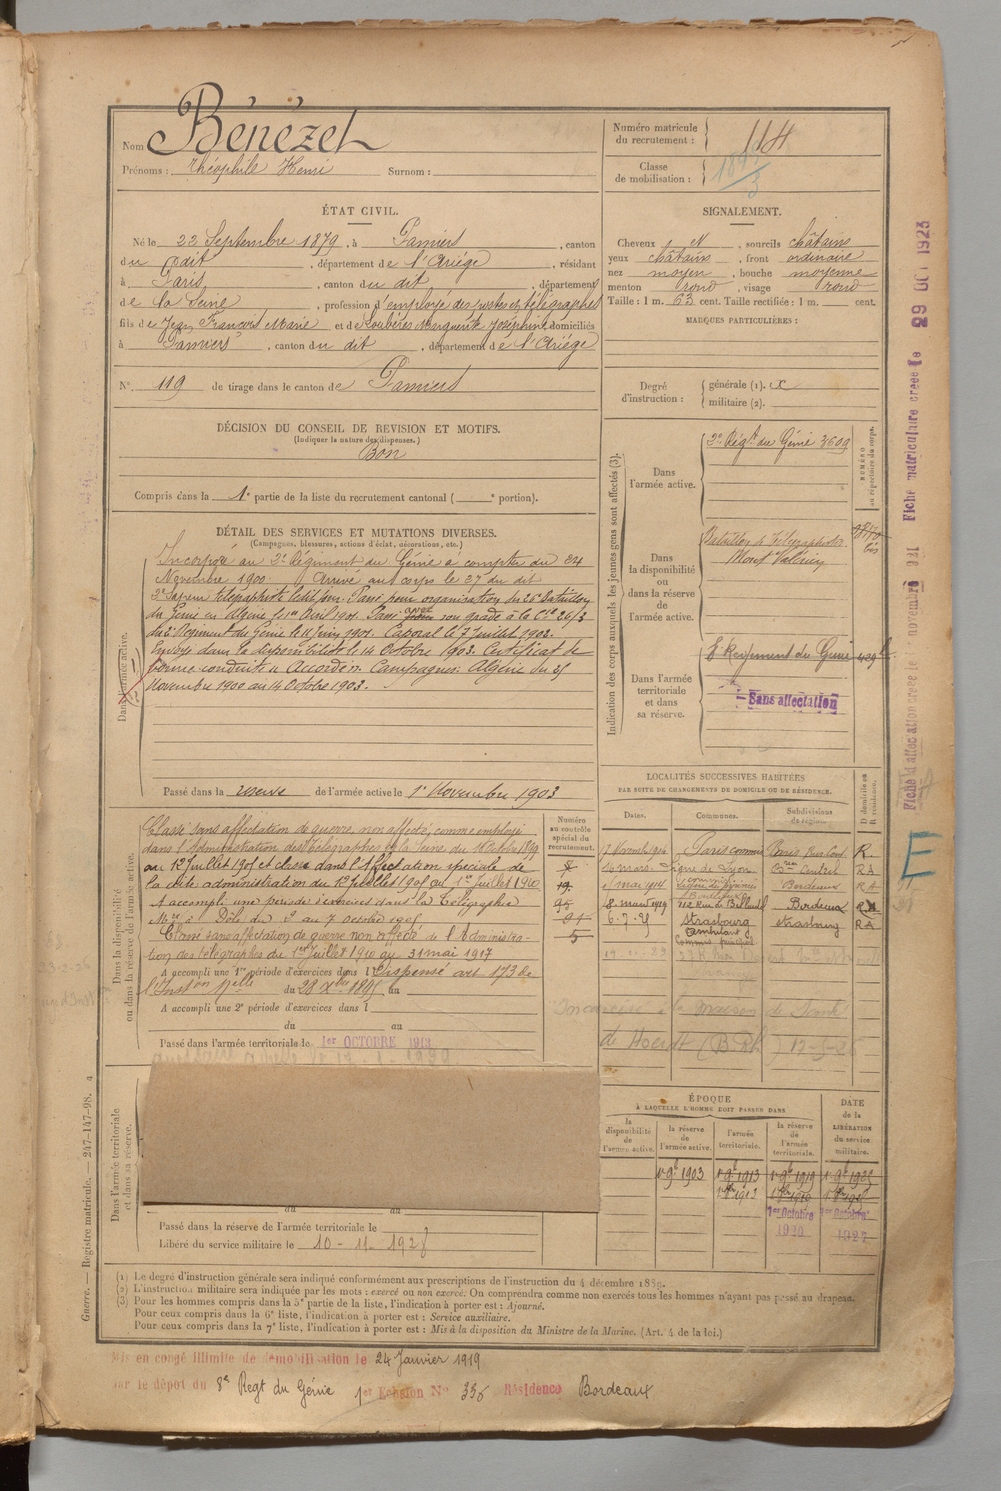 Nom Bénézet
Prénoms : Théophile Henri Surnom :
Numéro matricule du recrutement : 114
Classe de mobilisation :
ÉTAT CIVIL.
Né le 22 Septembre 1879, à Pamiers, canton
du dit, département de l'Ariège, résidant
à Paris, canton du dit, département
de la Seine, profession d'employé des postes et télégraphes
fils de Jean François Marie et de Loubères Marguerite Joséphine, domiciliés
à Pamiers, canton du dit, département de l'Ariège
N°. 119 de tirage dans le canton de Pamiers
SIGNALEMENT.
Cheveux et, sourcils châtains
yeux châtains, front ordinaire
nez moyen, bouche moyenne
menton rond, visage rond
Taille : 1 m. 63 cent. Taille rectifiée : 1 m. cent.
MARQUES PARTICULIÈRES :
Degré d'instruction : générale (1).
militaire (2).
DÉCISION DU CONSEIL DE REVISION ET MOTIFS.
(Indiquer la nature des dispenses.)
Bon
Compris dans la 1e partie de la liste du recrutement cantonal ( e portion).
DÉTAIL DES SERVICES ET MUTATIONS DIVERSES.
(Campagnes, blessures, actions d'éclat, décorations, etc.)
Dans l'armée active.
Incorporé au 2e Régiment du Génie à compter du 24
Novembre 1900. Arrivé au corps le 27 du dit
2e Sapeur télégraphiste ledit jour. Passé pour organisation du 26e Bataillon
du Génie en Algérie le 1er Avril 1901. Passé avec son grade à la Cie 26/3
du 2e Régiment du Génie le 11 Juin 1901. Caporal le 7 Juillet 1902.
Envoyé dans la disponibilité le 14 Octobre 1903. Certificat de
bonne conduite « Accordé ». Campagnes: Algérie du 25
Novembre 1900 au 14 Octobre 1903.
Passé dans la réserve de l'armée active le 1er Novembre 1903
Indication des corps auxquels les jeunes gens sont affectés (3).
NUMÉRO au répertoire du corps.
Dans l'armée active.
2e Régt. du Génie 3609
Dans la disponibilité ou dans la réserve de l'armée active.
Bataillon de Télégraphistes
Mont Valérien
bis
Dans l'armée territoriale et dans sa réserve.
8e Régiment du Génie
Sans affectation
Dans la disponibilité ou dans la réserve de l'armée active.
Classé sans affectation de guerre, non affecté, comme employé
dans l'Administration des Télégraphes de la Seine du 1er Octobre 1899
au 12 Juillet 1905 et classé dans l'Affectation spéciale de
la dite administration du 12 Juillet 1905 au 1er Juillet 1910
A accompli une période d'exercices dans la Télégraphie
Mre à Dôle du 2 au 7 octobre 1905
Classé sans affectation de guerre non affecté de l'Administra-
tion des télégraphes du 1er Juillet 1910 au 31 mai 1917
A accompli une 1re période d'exercices dans l Dispensé art 173 de
l'Inston du 28 Xbre 1895 au
A accompli une 2e période d'exercices dans l
du au
Passé dans l'armée territoriale le 1er OCTOBRE 1913
Numéro au contrôle spécial du recrutement.
LOCALITÉS SUCCESSIVES HABITÉES
PAR SUITE DE CHANGEMENTS DE DOMICILE OU DE RÉSIDENCE.
Dates. Communes. Subdivisions de région. D domicile ou R résidence.
Paris R.
Ligne de Lyon RA
Bordeaux RA
8 mars 1919 Bordeaux
6.7.25 Strasbourg Strasbourg RA
Incarcéré à la maison de Santé
de Hoerdt (B. Rh)
Dans l'armée territoriale et dans sa réserve.
du au
Passé dans la réserve de l'armée territoriale le
Libéré du service militaire le 10 - 11 - 1928
ÉPOQUE
À LAQUELLE L'HOMME DOIT PASSER DANS
la disponibilité de l'armée active. la réserve de l'armée active. l'armée territoriale. la réserve de l'armée territoriale. DATE de la LIBÉRATION du service militaire.
1er 9bre 1903 1er 9bre 1913 1er 9bre 1919 1er 9bre 1925
1er Octobre 1920 1er Octobre 1927
(1) Le degré d'instruction générale sera indiqué conformément aux prescriptions de l'instruction du 4 décembre 1889.
(2) L'instruction militaire sera indiquée par les mots : exercé ou non exercé. On comprendra comme non exercés tous les hommes n'ayant pas passé au drapeau.
(3) Pour les hommes compris dans la 5e partie de la liste, l'indication à porter est : Ajourné.
Pour ceux compris dans la 6e liste, l'indication à porter est : Service auxiliaire.
Pour ceux compris dans la 7e liste, l'indication à porter est : Mis à la disposition du Ministre de la Marine. (Art. 4 de la loi.)
Mis en congé illimité de démobilisation le 24 Janvier 1919
par le dépôt du 8e Regt du Génie 1er Echelon N° 336 Résidence Bordeaux
Guerre. — Registre matricule. — 247-147-98. 4
Fiche matriculaire créée le 29 OCT 1923
Fiche d'affectation créée le novembre 1931
E